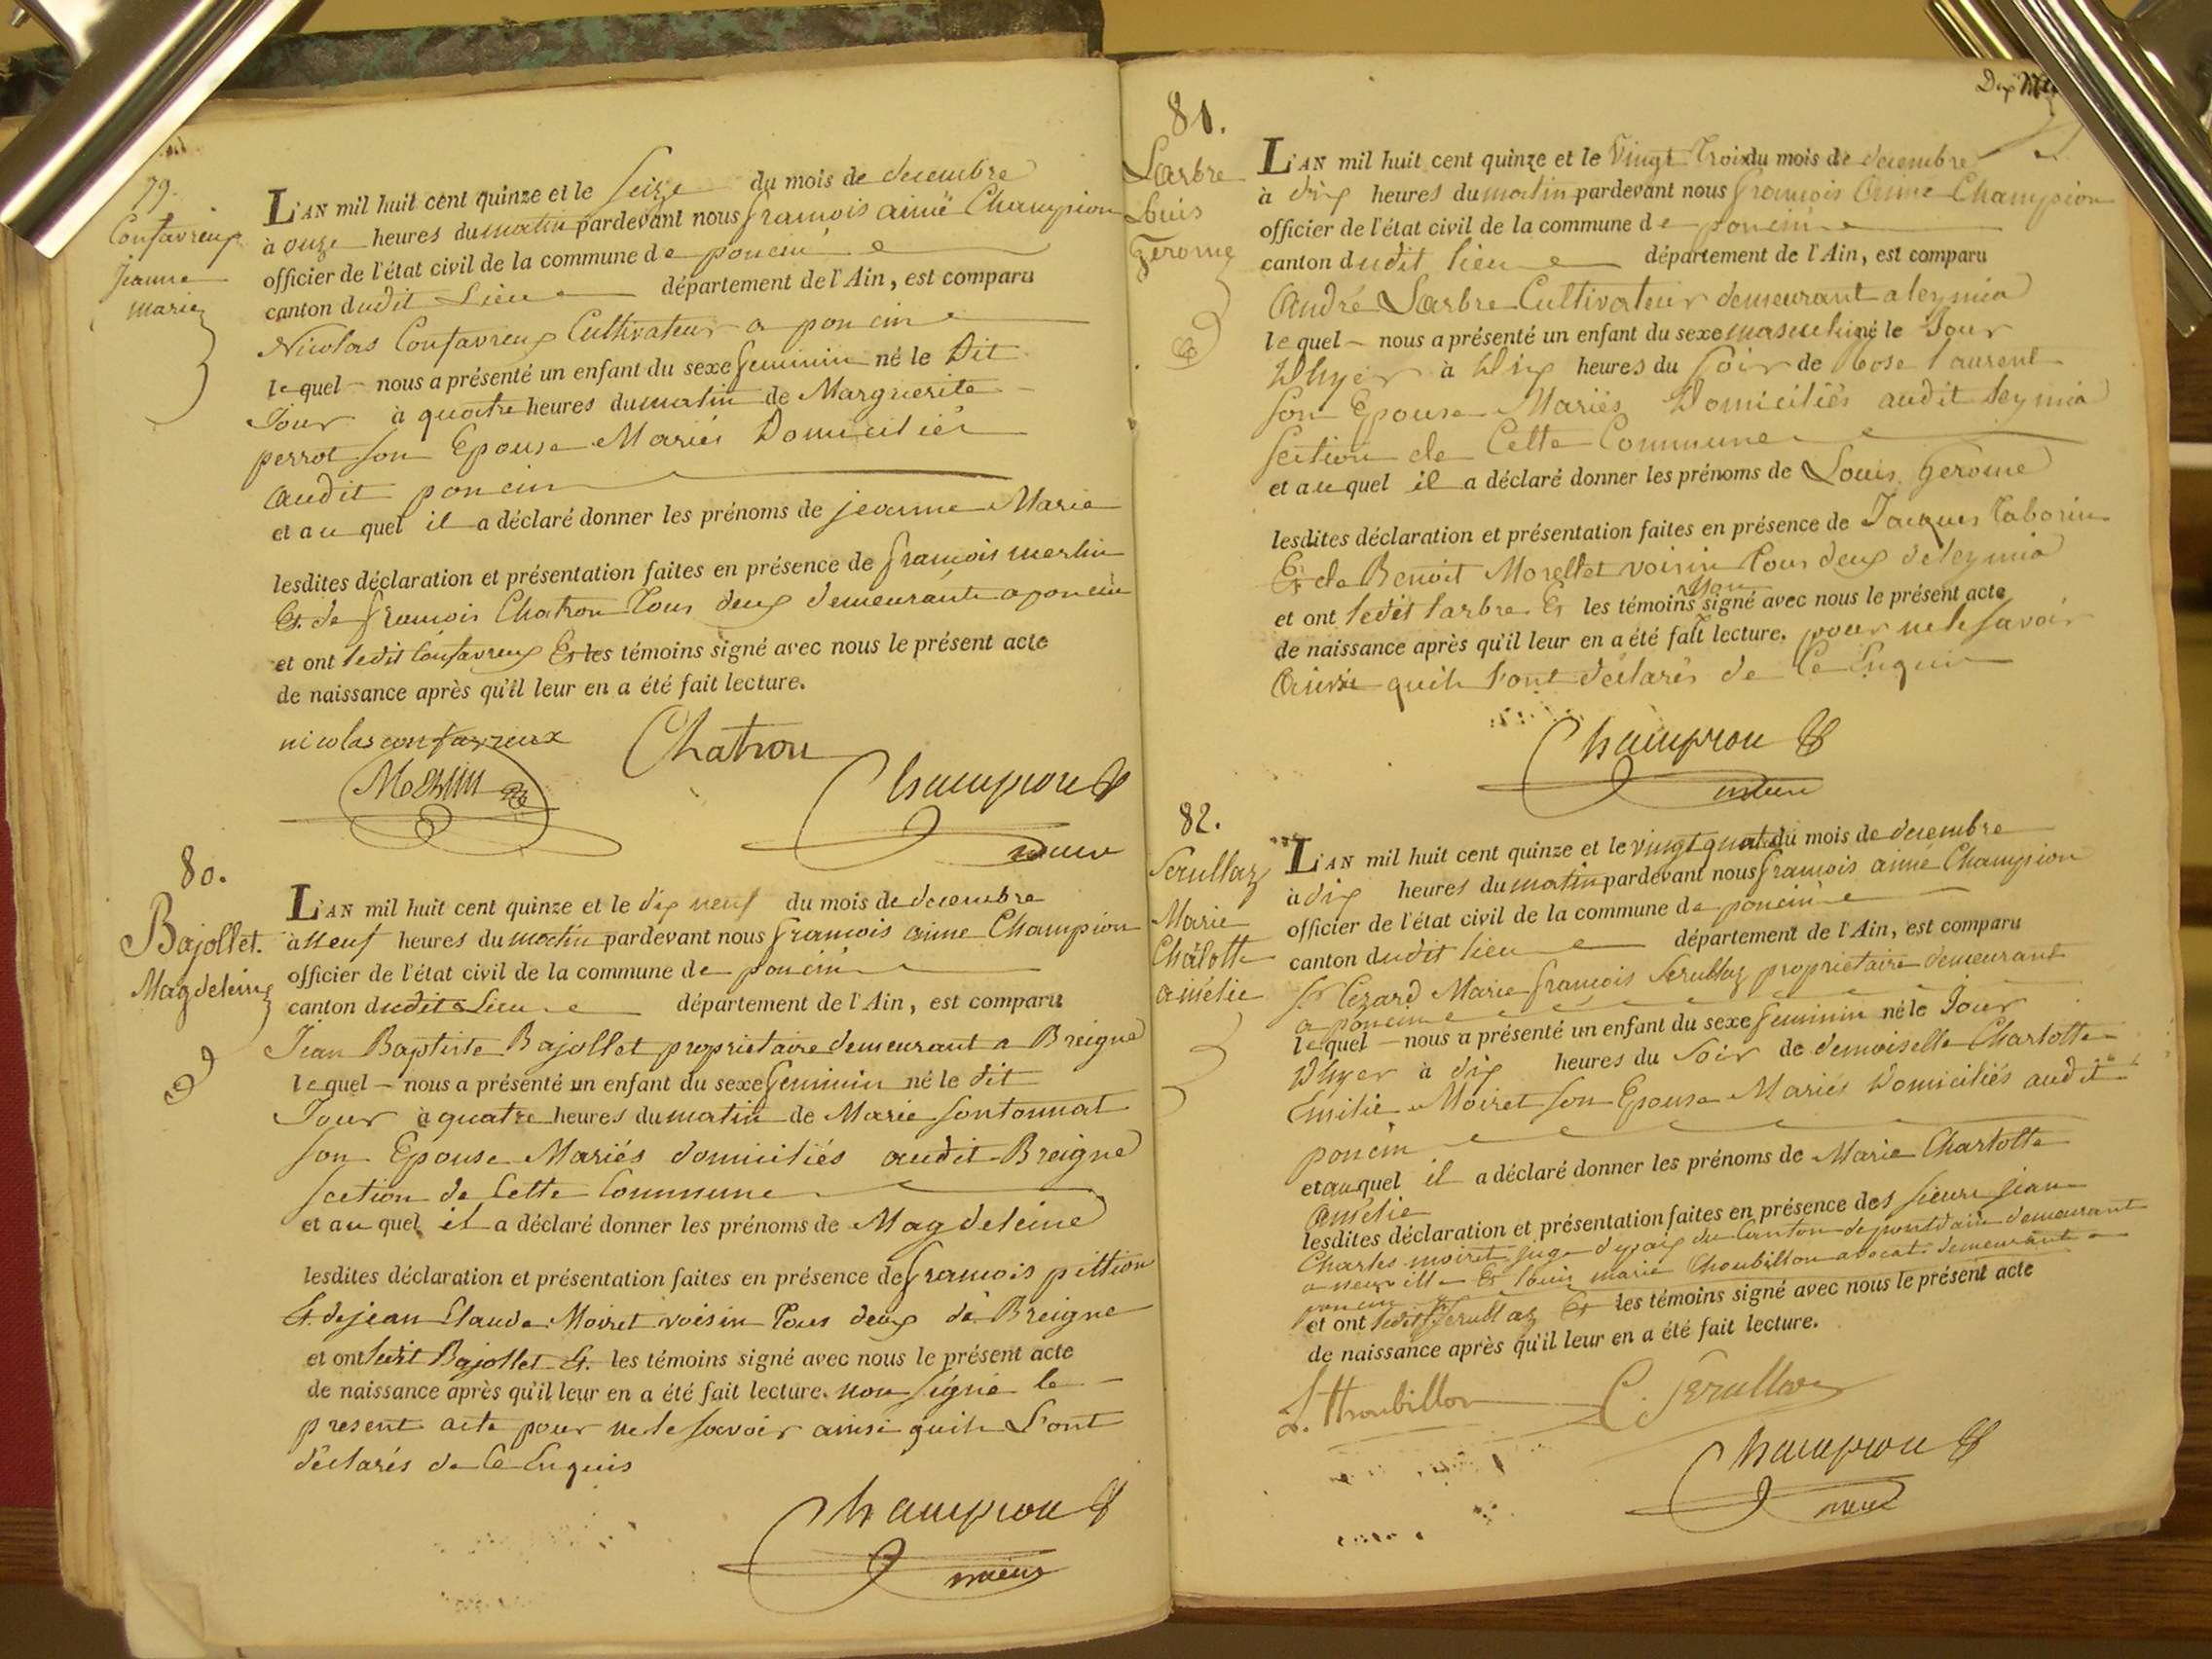 79.
Confavreux
Jeanne
marie
L'AN mil huit cent quinze et le seize du mois de decembre
à onze heures du matin pardevant nous françois aimé Champion
officier de l'état civil de la commune de poncin
canton dudit Lieu département de l'Ain, est comparu
Nicolas Confavreux Cultivateur a poncin
lequel nous a présenté un enfant du sexe feminin né le Dit
Jour à quatre heures du matin de Marguerite
perrot son Epouse Mariés Domiciliés
audit poncin
et au quel il a déclaré donner les prénoms de jeanne Marie
lesdites déclaration et présentation faites en présence de françois merlin
Et de françois Chatron Tous deux demeurants a poncin
et ont ledit Confavreux Et les témoins signé avec nous le présent acte
de naissance après qu'il leur en a été fait lecture.
nicolas confavreux
Chatron
Merlin
Champion
maire
80.
Bajollet.
Magdeleine
L'AN mil huit cent quinze et le dix neuf du mois de decembre
à Neuf heures du matin pardevant nous françois aimé Champion
officier de l'état civil de la commune de poncin
canton dudit Lieu département de l'Ain, est comparu
Jean Baptiste Bajollet proprietaire demeurant a Breigne
lequel nous a présenté un enfant du sexe feminin né le dit
Jour à quatre heures du matin de Marie fontonnat
son Epouse Mariés domiciliés audit Breigne
section de Cette Commune
et au quel il a déclaré donner les prénoms de Magdeleine
lesdites déclaration et présentation faites en présence de françois pittion
Et de jean Claude Moiret voisin Tous deux de Breigne
et ont ledit Bajollet Et les témoins signé avec nous le présent acte
de naissance après qu'il leur en a été fait lecture. non signé le
present acte pour ne le savoir ainsi quils L'ont
déclarés de Ce Enquis
Champion
maire
81.
Larbre
Louis
Gerome
L'AN mil huit cent quinze et le Vingt Trois du mois de decembre
à dix heures du matin pardevant nous françois Aimé Champion
officier de l'état civil de la commune de poncin
canton dudit lieu département de l'Ain, est comparu
André Larbre Cultivateur demeurant a leymia
lequel nous a présenté un enfant du sexe masculin né le Jour
D'hyer à Dix heures du soir de Rose laurent
son Epouse Mariés Domiciliés audit leymia
section de Cette Commune
et au quel il a déclaré donner les prénoms de Louis Gerome
lesdites déclaration et présentation faites en présence de Jacques Taborin
Et de Benoit Morellet voisin Tous deux de leymia
et ont ledit larbre Et les témoins non signé avec nous le présent acte
de naissance après qu'il leur en a été fait lecture. pour ne le savoir
Ainsi quils L'ont déclarés de Ce Enquis
Champion
maire
82.
Serullaz
Marie
Chalotte
amélie
L'AN mil huit cent quinze et le vingt quatre du mois de decembre
à dix heures du matin pardevant nous françois aimé Champion
officier de l'état civil de la commune de poncin
canton dudit lieu département de l'Ain, est comparu
Sr Cezard Marie françois Serullaz proprietaire demeurant
a poncin
lequel nous a présenté un enfant du sexe feminin né le Jour
D'hyer à dix heures du soir de demoiselle Charlotte
Emilie Moiret son Epouse Mariés Domiciliés audit
poncin
et au quel il a déclaré donner les prénoms de Marie Charlotte
Amélie
lesdites déclaration et présentation faites en présence des sieurs jean
Charles moiret juge de paix du Canton de pontdain demeurant
a neuville Et louis marie Thoubillon avocat demeurant a
poncin
et ont ledit Serullaz Et les témoins signé avec nous le présent acte
de naissance après qu'il leur en a été fait lecture.
L. Thoubillon
C. Serullaz
Champion
maire